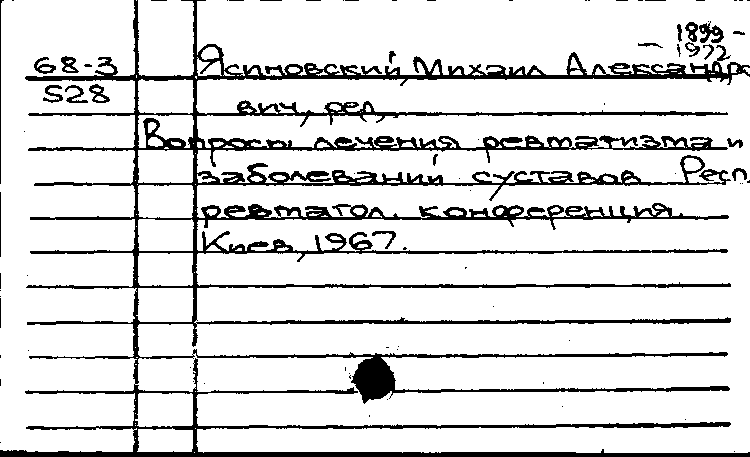 1899 -
- 1972
68-3 Ясиновский, Михаил Александро
S28
вич, ред.
Вопросы лечения ревматизма и
заболеваний суставов Респ.
ревматол. конференция.
Киев, 1967.